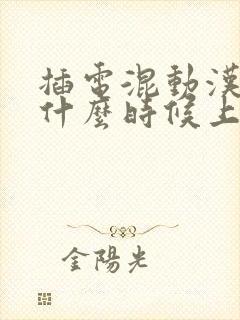 插電混動漢
什麼時候上
金陽光